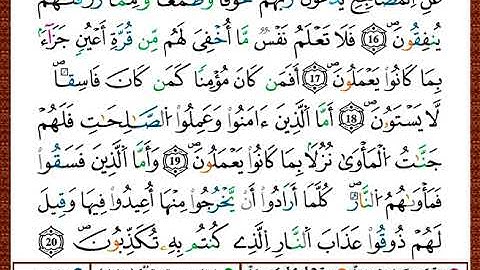 عَنِ ٱلْمَضَاجِعِ يَدْعُونَ رَبَّهُمْ خَوْفًا وَطَمَعًا وَمِمَّا رَزَقْنَٰهُمْ
يُنفِقُونَ ۝16 فَلَا تَعْلَمُ نَفْسٌ مَّآ أُخْفِىَ لَهُم مِّن قُرَّةِ أَعْيُنٍ جَزَآءًۢ
بِمَا كَانُوا۟ يَعْمَلُونَ ۝17 أَفَمَن كَانَ مُؤْمِنًا كَمَن كَانَ فَاسِقًا
لَّا يَسْتَوُۥنَ ۝18 أَمَّا ٱلَّذِينَ ءَامَنُوا۟ وَعَمِلُوا۟ ٱلصَّٰلِحَٰتِ فَلَهُمْ
جَنَّٰتُ ٱلْمَأْوَىٰ نُزُلًۢا بِمَا كَانُوا۟ يَعْمَلُونَ ۝19 وَأَمَّا ٱلَّذِينَ فَسَقُوا۟
فَمَأْوَىٰهُمُ ٱلنَّارُ كُلَّمَآ أَرَادُوٓا۟ أَن يَخْرُجُوا۟ مِنْهَآ أُعِيدُوا۟ فِيهَا وَقِيلَ
لَهُمْ ذُوقُوا۟ عَذَابَ ٱلنَّارِ ٱلَّذِى كُنتُم بِهِۦ تُكَذِّبُونَ ۝20